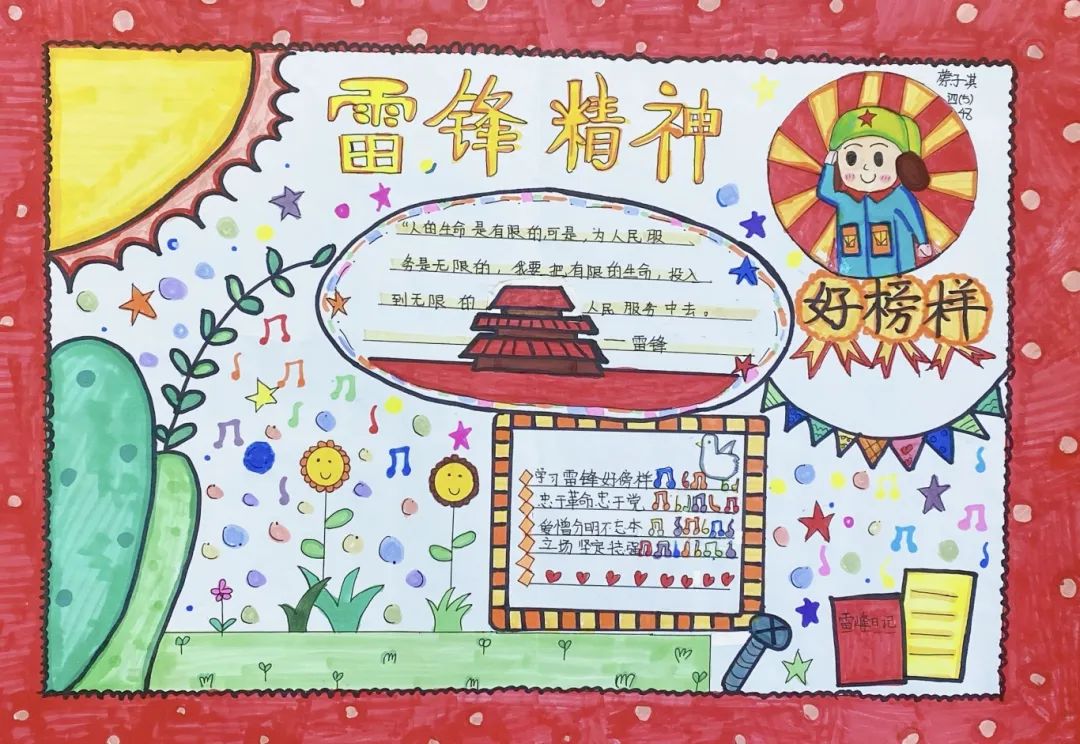 雷锋精神
四(5)
48
"人的生命是有限的可是,为人民服
务是无限的,我要把有限的生命,投入
到无限的 人民服务中去。
——雷锋
好榜样
学习雷锋好榜样
忠于革命忠于党
爱憎分明不忘本
立场坚定
雷锋日记